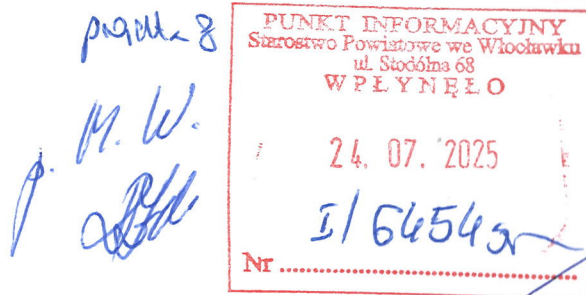 PUNKT INFORMACYJNY
Starostwo Powiatowe we Włocławku
ul. Stodólna 68
WPŁYNĘŁO
24. 07. 2025
I/6454
Nr
p. M. W.